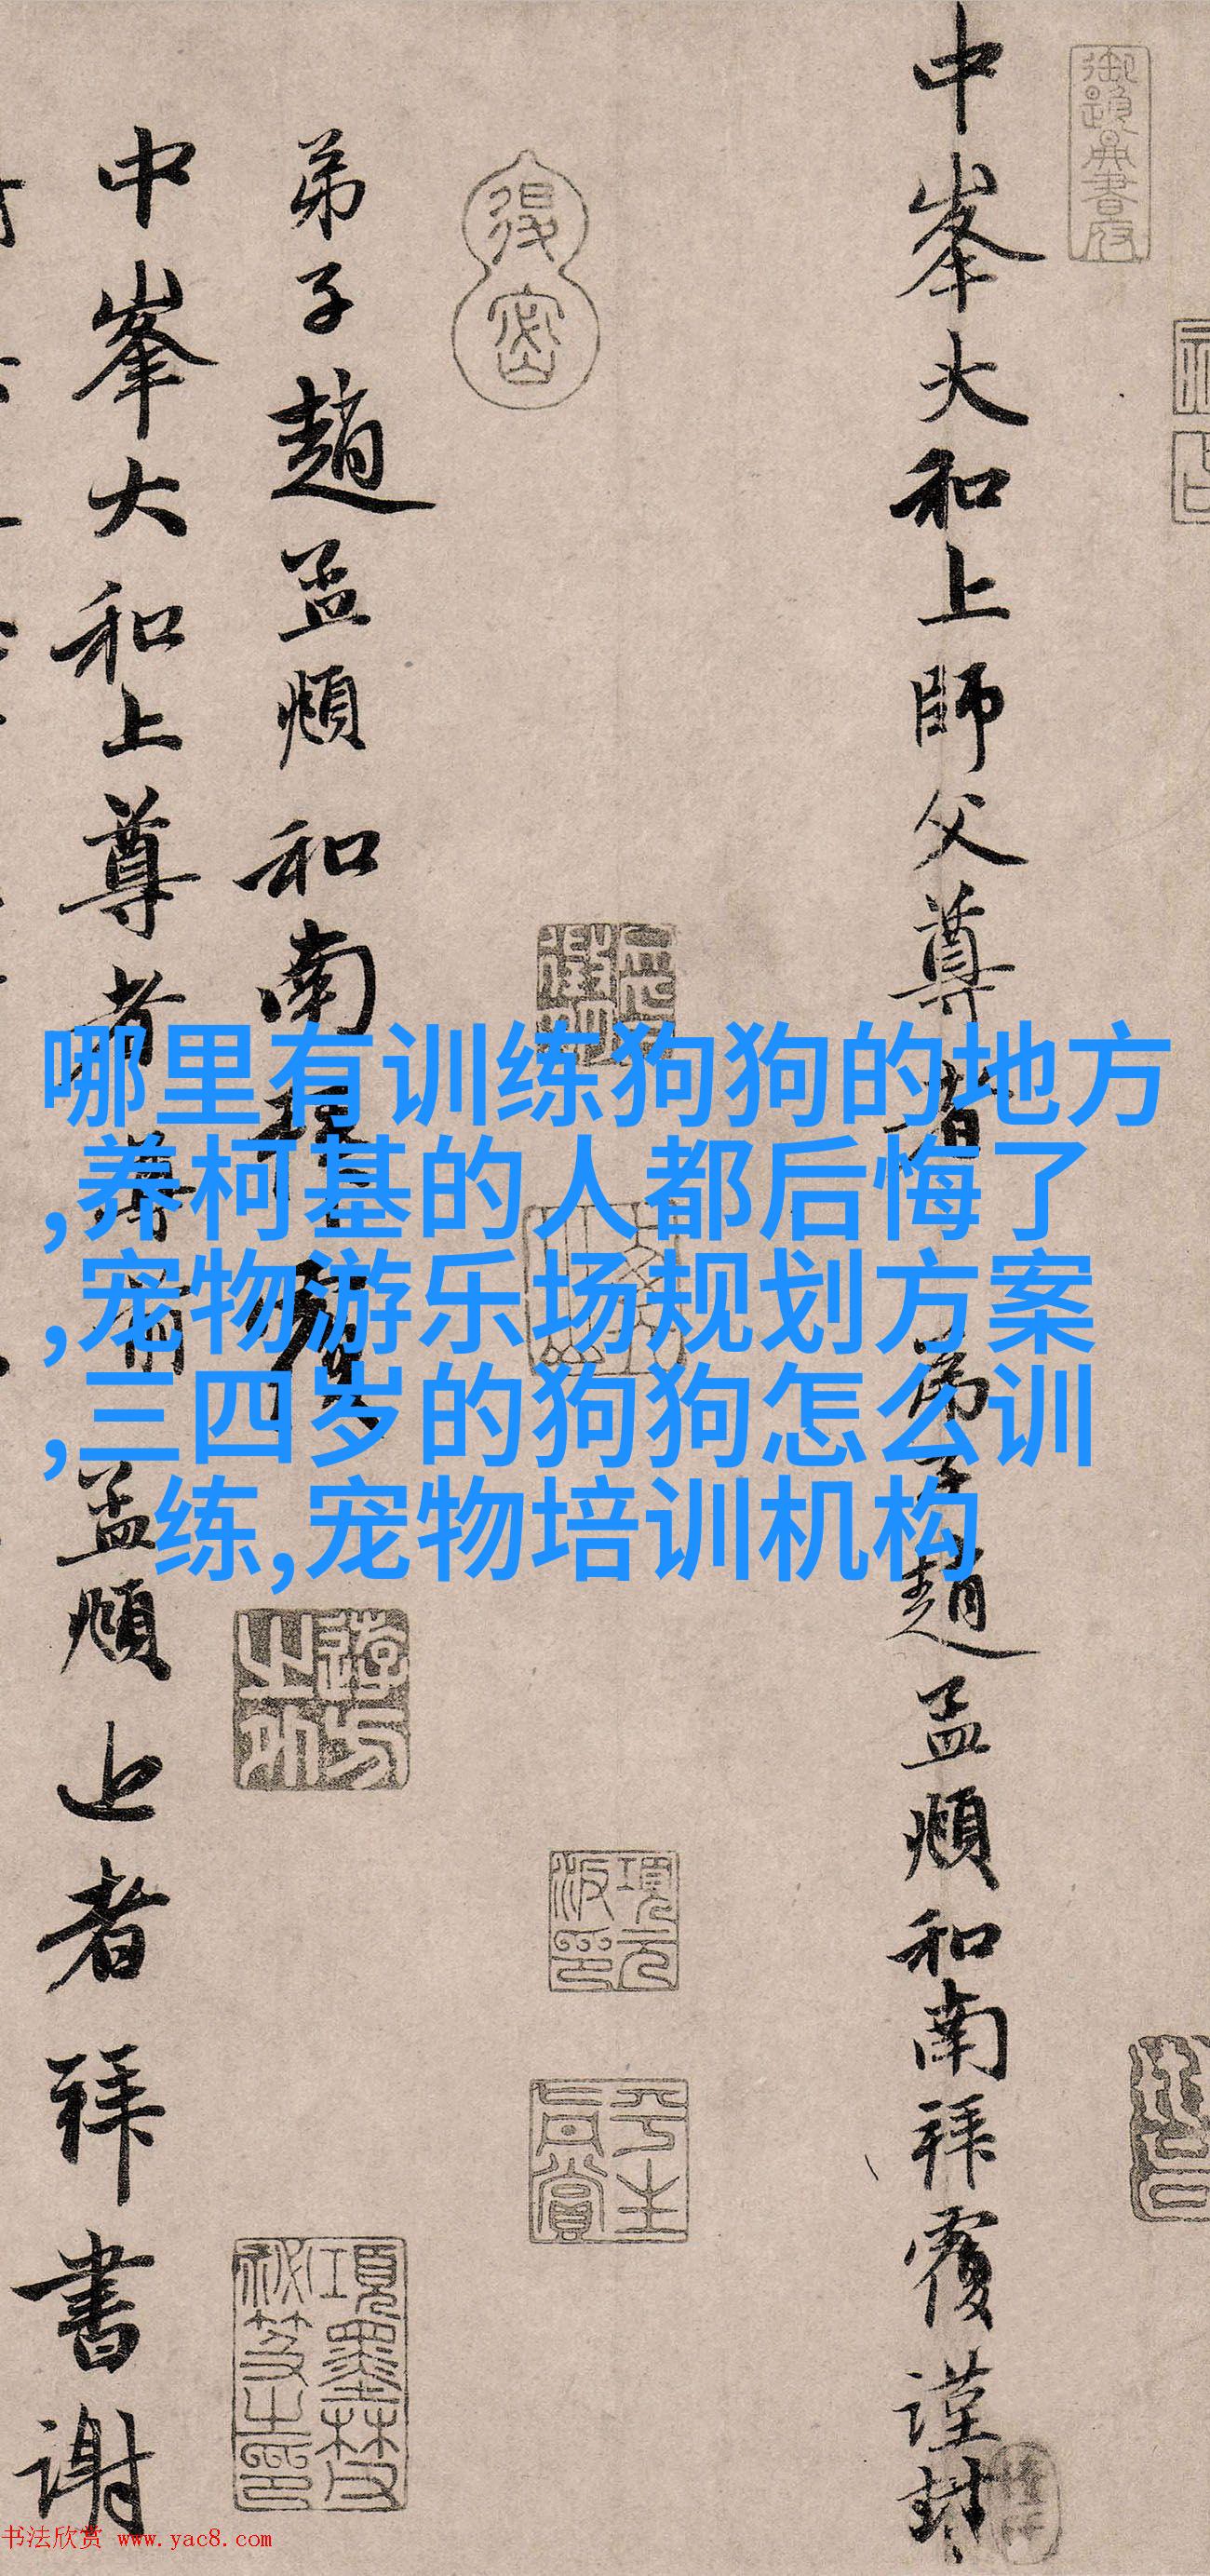 中峯大和上師父尊者
弟子趙孟頫和南拜覆謹封
弟子趙孟頫和南拜覆
中峯大和上尊者尊前
孟頫上者拜書謝
御題
書府
項元
汴印
平生
真賞
項墨林父
秘笈之印
哪里有训练狗狗的地方
,养柯基的人都后悔了
,宠物游乐场规划方案
,三四岁的狗狗怎么训
练,宠物培训机构
书法欣赏 www.yac8.com